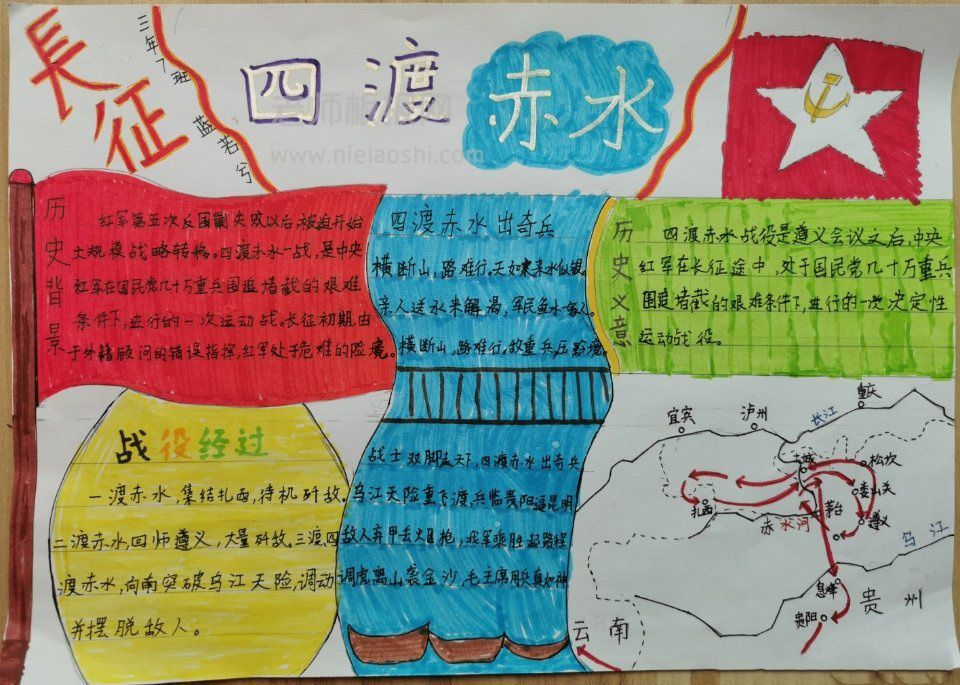 長征
三年7班
蓝若兮
四渡赤水
www.nielaoshi.com
历史背景
红军第五次反围剿失败以后,被迫开始
大规模战略转移。四渡赤水一战,是中央
红军在国民党几十万重兵围追堵截的艰难
条件下,进行的一次运动战。长征初期,由
于外籍顾问的错误指挥,红军处于危难的险境。
四渡赤水出奇兵
横断山,路难行。天如火来水似银。
亲人送水来解渴,军民鱼水一家人。
横断山,路难行,敌重兵,压黔境。
战士双脚走天下,四渡赤水出奇兵
乌江天险重飞渡,兵临贵阳逼昆明
敌人弃甲丢火枪,我军乘胜赶路程
调虎离山袭金沙,毛主席用兵真如神
历史义意
四渡赤水战役是遵义会议之后,中央
红军在长征途中,处于国民党几十万重兵
围追堵截的艰难条件下,进行的一次决定性
运动战役。
战役经过
一渡赤水,集结扎西,待机歼敌。
二渡赤水,回师遵义,大量歼敌。三渡,四
渡赤水,向南突破乌江天险,调动
并摆脱敌人。
宜宾
泸州
重庆
长江
古城
松坎
娄山关
扎西
茅台
遵义
赤水河
乌江
息烽
贵阳
贵州
云南